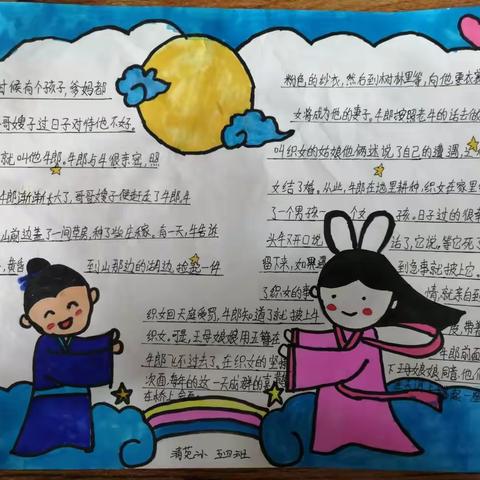 时候有个孩子,爹妈都
哥嫂子过日子对待他不好。
就叫他牛郎。牛郎与牛很亲密,照
牛郎渐渐长大了,哥哥嫂子便赶走了牛郎牛
山前边盖了一间草房,种了些庄稼。有一天,牛告诉
黄昏 到山那边的湖边,捡起一件
粉色的纱衣,然后到树林里等,向他要衣裳
女将成为他的妻子。牛郎按照老牛的话去做
叫织女的姑娘他俩述说了自己的遭遇,
女结了婚。从此,牛郎在地里耕种,织女在家里
了一个男孩 一个女 孩。日子过的很幸
头牛又开口说 话了,它说,等它死了
留下来,如果遇 到急事就披上它。
了织女的事 情,就亲自到
织女回天庭受罚,牛郎知道了就披上牛 皮,带着
织女。可是,王母娘娘用玉簪在 牛郎前面
牛郎飞不过去了。在织女的坚持 下王母娘娘同意,他们
次面,每年的这一天成群的喜鹊
在桥上会面。
清苑小 五四班